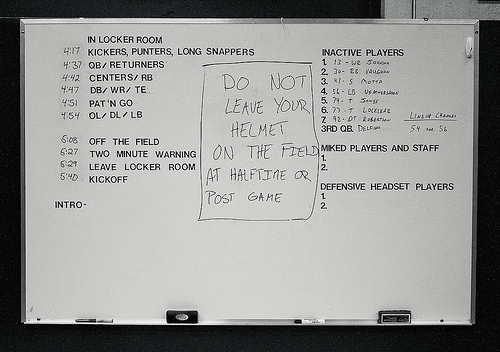 IN LOCKER ROOM
4:17 KICKERS, PUNTERS, LONG SNAPPERS
4:37 QB/ RETURNERS
4:42 CENTERS/ RB
4:47 DB/ WR/ TE
4:51 PAT 'N GO
4:54 OL/ DL/ LB
5:08 OFF THE FIELD
5:27 TWO MINUTE WARNING
5:29 LEAVE LOCKER ROOM
5:40 KICKOFF
INTRO-
DO NOT
LEAVE YOUR
HELMET
ON THE FIELD
AT HALFTIME OR
POST GAME
INACTIVE PLAYERS
1. 13 - WR
2. 30 - RB VAUGHN
3. 41 - S MOTTA
4. 56 - LB
5. 74 - T JONES
6. 77 - T
7. 92 - DT ROBERTSON
3RD Q.B. DELFINO
LINEUP CHANGES
54 FOR 56
MIKED PLAYERS AND STAFF
1.
2.
DEFENSIVE HEADSET PLAYERS
1.
2.